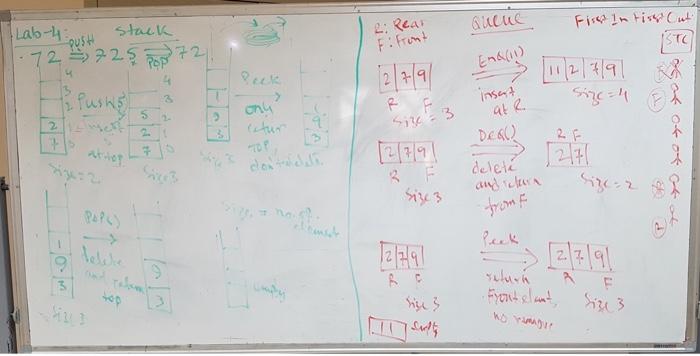 Lab-4: Stack
72 push 725 pop 72
4
3
2
2 1
7 0
Push(5)
insert
at top
4
3
5 2
2 1
7 0
Size = 2
Size 3
1
9
3
Peek
only
return
TOP
don't delete
1
9
3
Size 3
1
9
3
POP()
delete
and return
top
9
3
Size 3
Size = no. of
element
empty
R: Rear
F: Front
Queue
First In First Out
STC
2 7 9
R F
Size = 3
EnQ(11)
insert
at R.
11 2 7 9
Size = 4
F
2 7 9
R F
Size 3
DeQ()
delete
and return
from F
R F
2 7
Size = 2
R
2 7 9
R F
Size 3
Peek
return
Front elemt,
no remove
2 7 9
R F
Size 3
empty